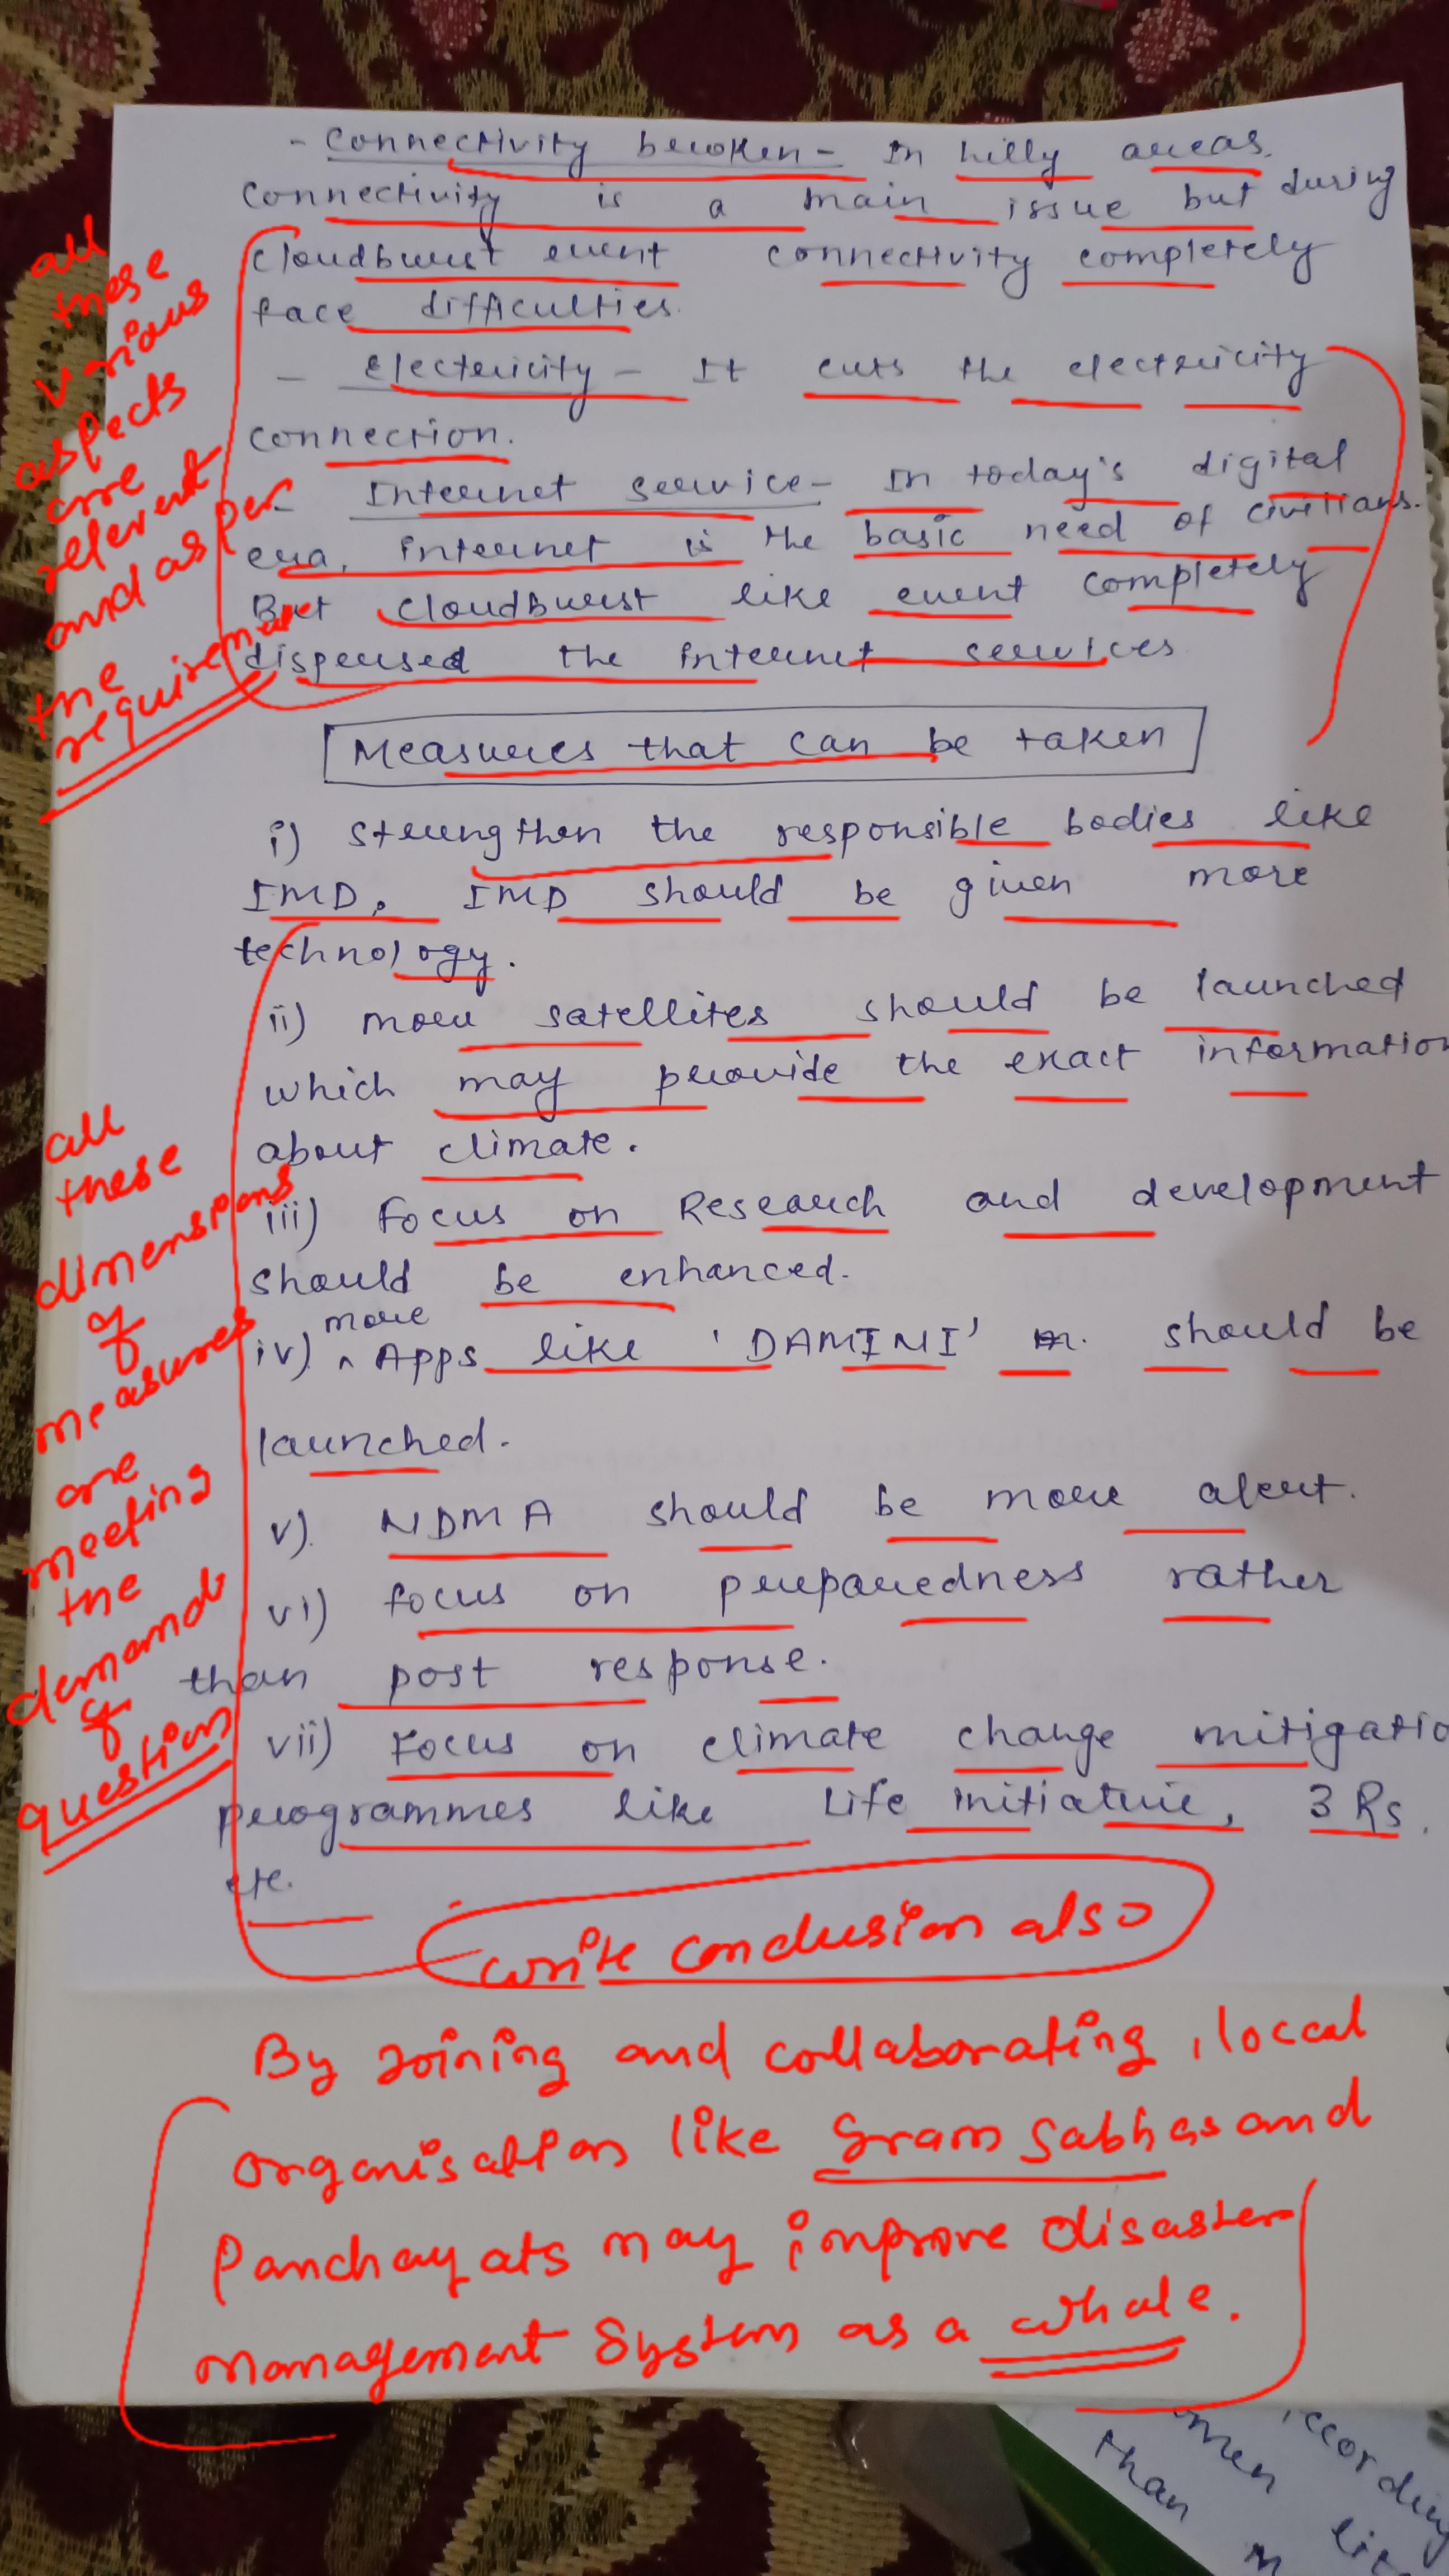 - Connectivity broken - In hilly areas.
Connectivity is a main issue but during
cloudburst event connectivity completely
face difficulties.
- Electricity - It cuts the electricity
connection.
- Internet service - In today's digital
era, internet is the basic need of civilians.
But cloudburst like event completely
dispersed the internet services
all
these
various
aspects
are
relevent
and as per
the
requirement
Measures that can be taken
i) strengthen the responsible bodies like
IMD. IMD should be given more
technology.
ii) more satellites should be launched
which may provide the exact information
about climate.
iii) Focus on Research and development
should be enhanced.
iv) more Apps like 'DAMINI' should be
launched.
v). NDMA should be more alert.
vi) focus on preparedness rather
than post response.
vii) Focus on climate change mitigatio
programmes like Life initiative, 3 Rs.
etc.
all
these
dimensions
of
measures
are
meeting
the
demand
of
question
write conclusion also
By joining and collaborating, local
organisation like Gram Sabhas and
Panchayats may improve disaster
management System as a whole.
ccording
omen lit
than